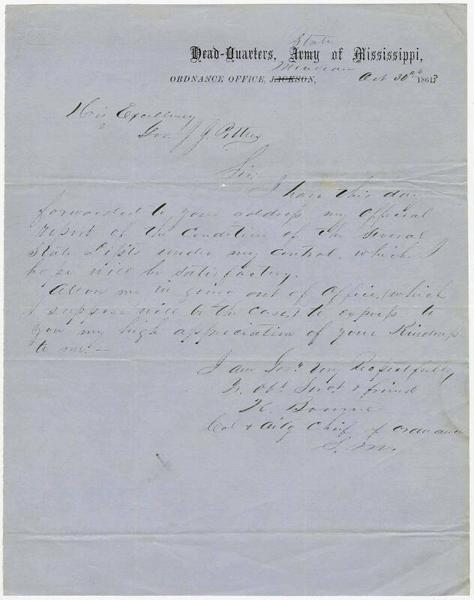 State
Head-Quarters, Army of Mississippi,
Meridian
ORDNANCE OFFICE, JACKSON, Oct 30th 1863
His Excellency
Gov. J. J. Pettus
Sir
I have this day
forwarded to your address my Official
report of the Condition of the Several
State under my control, which I
hope will be satisfactory.
Allow me in going out of Office (which
I suppose will be the case) to express to
you my high appreciation of your Kindness
to me. —
I am Gov. Very Respectfully
Yr. Obt. Servt. & friend
Col & Chief of Ordnance
S. M.